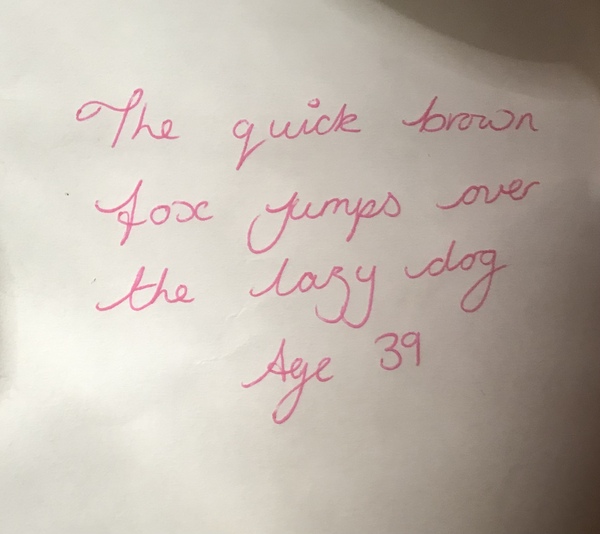 The quick brown
fox jumps over
the lazy dog
Age 39